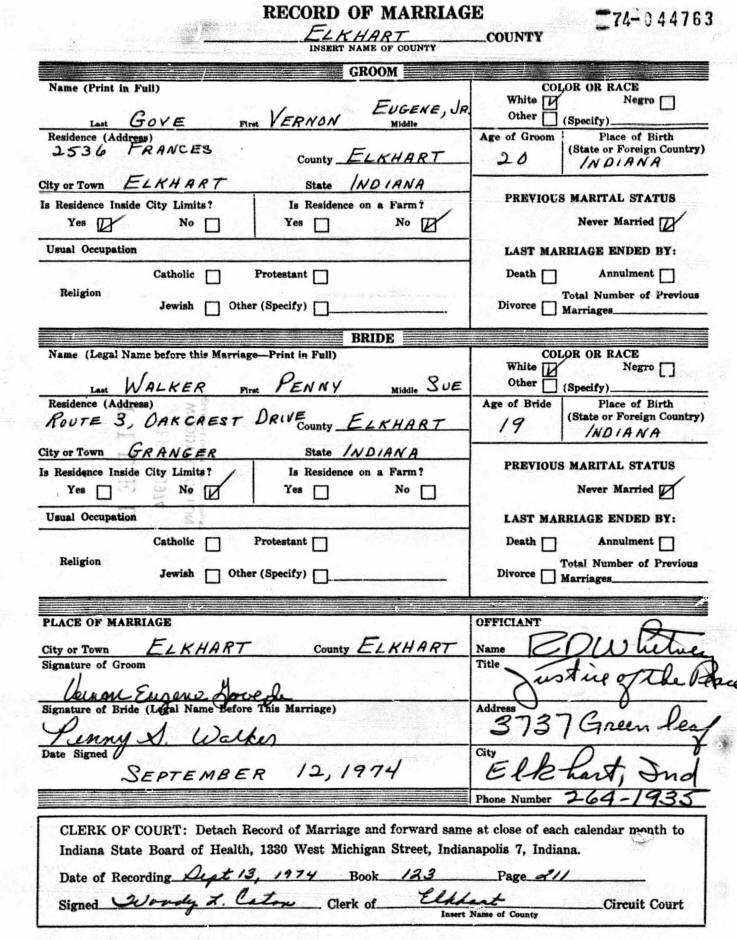 RECORD OF MARRIAGE
74-044763
ELKHART COUNTY
INSERT NAME OF COUNTY
GROOM
Name (Print in Full)
Last GOVE First VERNON Middle EUGENE, JR.
COLOR OR RACE
White Negro
Other (Specify)
Residence (Address)
2536 FRANCES
County ELKHART
Age of Groom
20
Place of Birth
(State or Foreign Country)
INDIANA
City or Town ELKHART State INDIANA
Is Residence Inside City Limits?
Yes No
Is Residence on a Farm?
Yes No
PREVIOUS MARITAL STATUS
Never Married
Usual Occupation
LAST MARRIAGE ENDED BY:
Religion
Catholic Protestant
Jewish Other (Specify)
Death Annulment
Divorce Total Number of Previous
Marriages
BRIDE
Name (Legal Name before this Marriage—Print in Full)
Last WALKER First PENNY Middle SUE
COLOR OR RACE
White Negro
Other (Specify)
Residence (Address)
ROUTE 3, OAKCREST DRIVE County ELKHART
Age of Bride
19
Place of Birth
(State or Foreign Country)
INDIANA
City or Town GRANGER State INDIANA
Is Residence Inside City Limits?
Yes No
Is Residence on a Farm?
Yes No
PREVIOUS MARITAL STATUS
Never Married
Usual Occupation
LAST MARRIAGE ENDED BY:
Religion
Catholic Protestant
Jewish Other (Specify)
Death Annulment
Divorce Total Number of Previous
Marriages
PLACE OF MARRIAGE
City or Town ELKHART County ELKHART
Signature of Groom
Vernon Eugene Gove Jr
Signature of Bride (Legal Name Before This Marriage)
Penny S. Walker
Date Signed
SEPTEMBER 12, 1974
OFFICIANT
Name R D Whitney
Title
Justice of the Peace
Address
3737 Greenleaf
City
Elkhart, Ind
Phone Number 264-1935
CLERK OF COURT: Detach Record of Marriage and forward same at close of each calendar month to
Indiana State Board of Health, 1330 West Michigan Street, Indianapolis 7, Indiana.
Date of Recording Sept 13, 1974 Book 123 Page 211
Signed Woody L. Caton Clerk of Elkhart Circuit Court
Insert Name of County